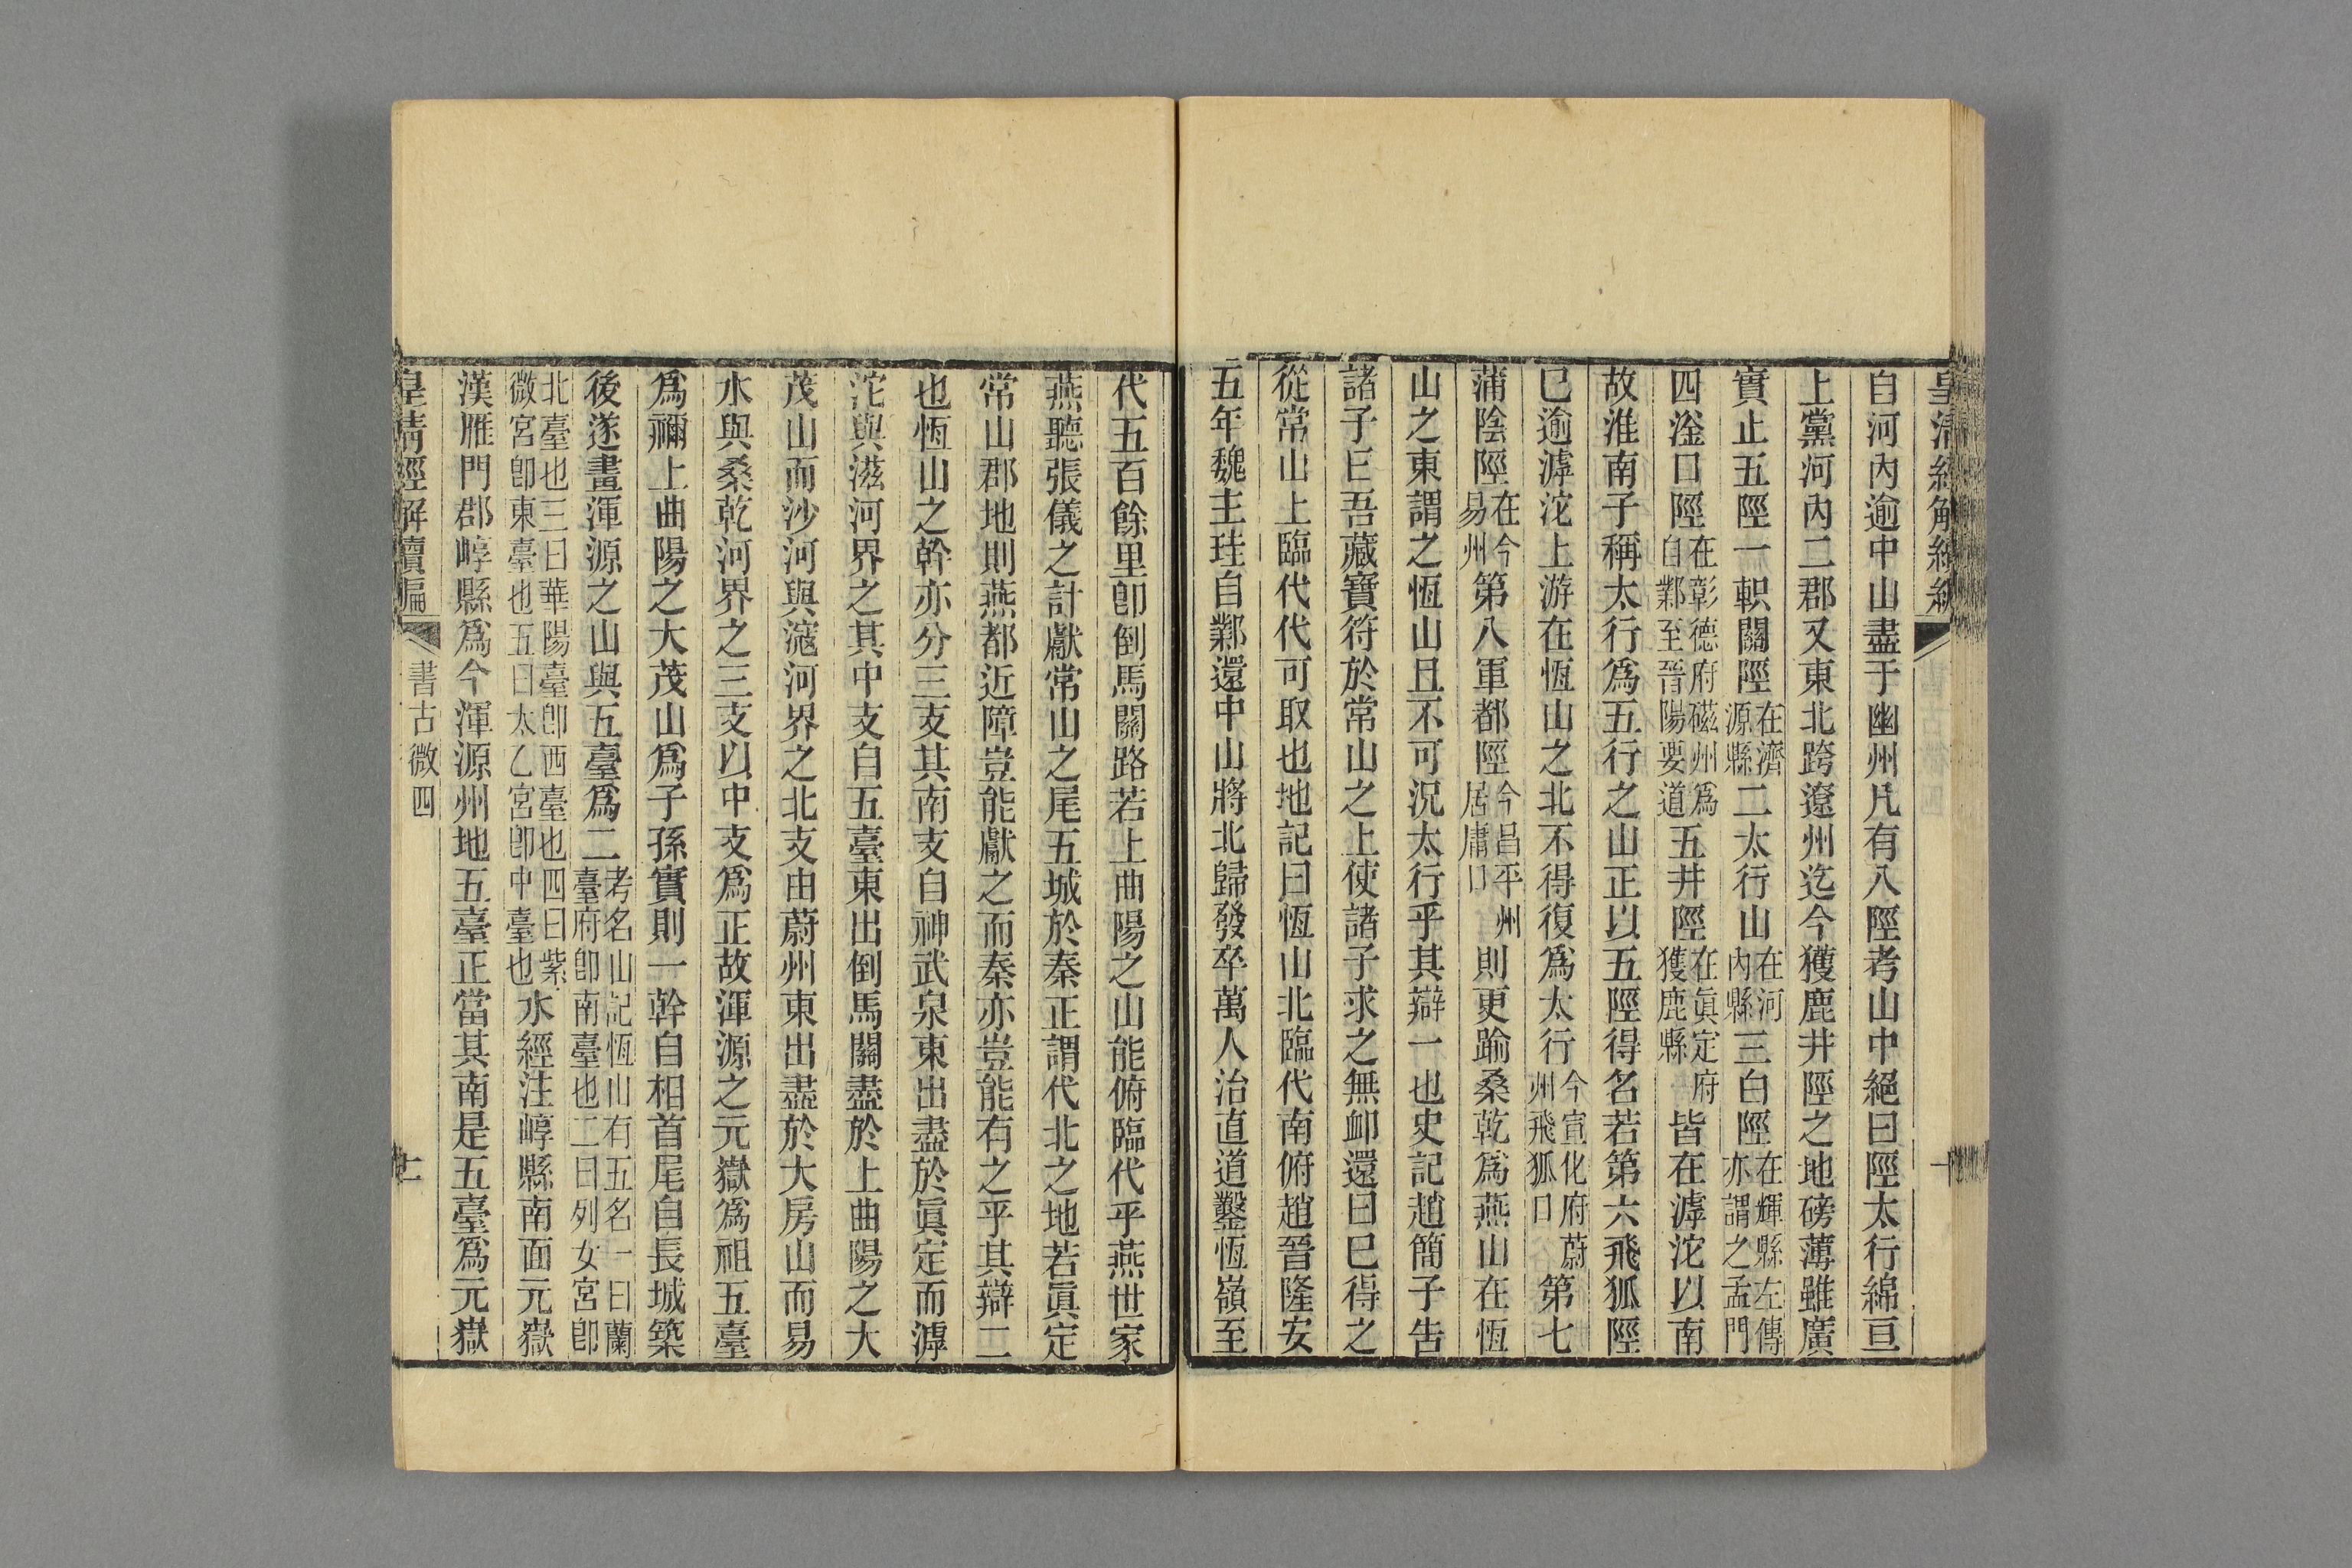 自河內逾中山盡于幽州凡有八陘考山中絕曰陘太行綿亘
上黨河內二郡又東北跨遼州迄今獲鹿井陘之地磅薄雖廣
實止五陘一軹關陘在濟源縣二太行山在河內縣三白陘在輝縣左傳亦謂之孟門
四滏口陘在彰德府磁州爲自鄴至晉陽要道五井陘在眞定府獲鹿縣皆在滹沱以南
故淮南子稱太行爲五行之山正以五陘得名若第六飛狐陘
巳逾滹沱上游在恆山之北不得復爲太行今宣化府蔚州飛狐口第七
蒲陰陘在今易州第八軍都陘今昌平州居庸口則更踰桑乾爲燕山在恆
山之東謂之恆山且不可況太行乎其辯一也史記趙簡子告
諸子曰吾藏寶符於常山之上使諸子求之無卹還曰巳得之
從常山上臨代代可取也地記曰恆山北臨代南俯趙晉隆安
五年魏主珪自鄴還中山將北歸發卒萬人治直道鑿恆嶺至
代五百餘里卽倒馬關路若上曲陽之山能俯臨代乎燕世家
燕聽張儀之計獻常山之尾五城於秦正謂代北之地若眞定
常山郡地則燕都近障豈能獻之而秦亦豈能有之乎其辯二
也恆山之幹亦分三支其南支自神武泉東出盡於眞定而滹
沱與滋河界之其中支自五臺東出倒馬關盡於上曲陽之大
茂山而沙河與滱河界之北支由蔚州東出盡於大房山而易
水與桑乾河界之三支以中支爲正故渾源之元嶽爲祖五臺
爲禰上曲陽之大茂山爲子孫實則一幹自相首尾自長城築
後遂畫渾源之山與五臺爲二考名山記恆山有五名一曰蘭臺府卽南臺也二曰列女宮卽
北臺也三曰華陽臺卽西臺也四曰紫微宮卽東臺也五曰太乙宮卽中臺也水經注崞縣南面元嶽
漢雁門郡崞縣爲今渾源州地五臺正當其南是五臺爲元嶽
皇清經解續編
書古微四